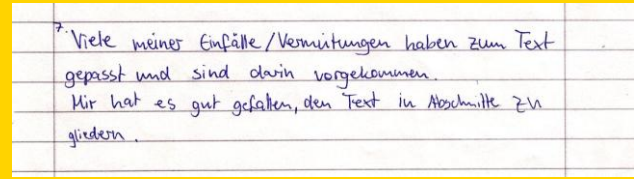 7. Viele meiner Einfälle/Vermutungen haben zum Text
gepasst und sind darin vorgekommen.
Mir hat es gut gefallen, den Text in Abschnitte zu
gliedern.